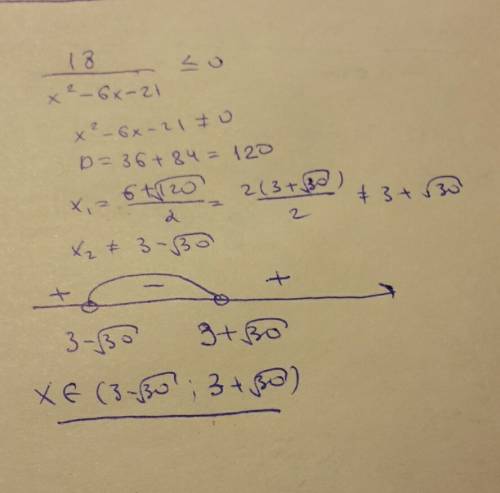 18 / x² - 6x - 21 ≤ 0
x² - 6x - 21 ≠ 0
D = 36 + 84 = 120
x₁ = 6 + √120 / 2 = 2(3 + √30) / 2 ≠ 3 + √30
x₂ ≠ 3 - √30
+ - +
3-√30 3+√30
x ∈ (3-√30 ; 3+√30)